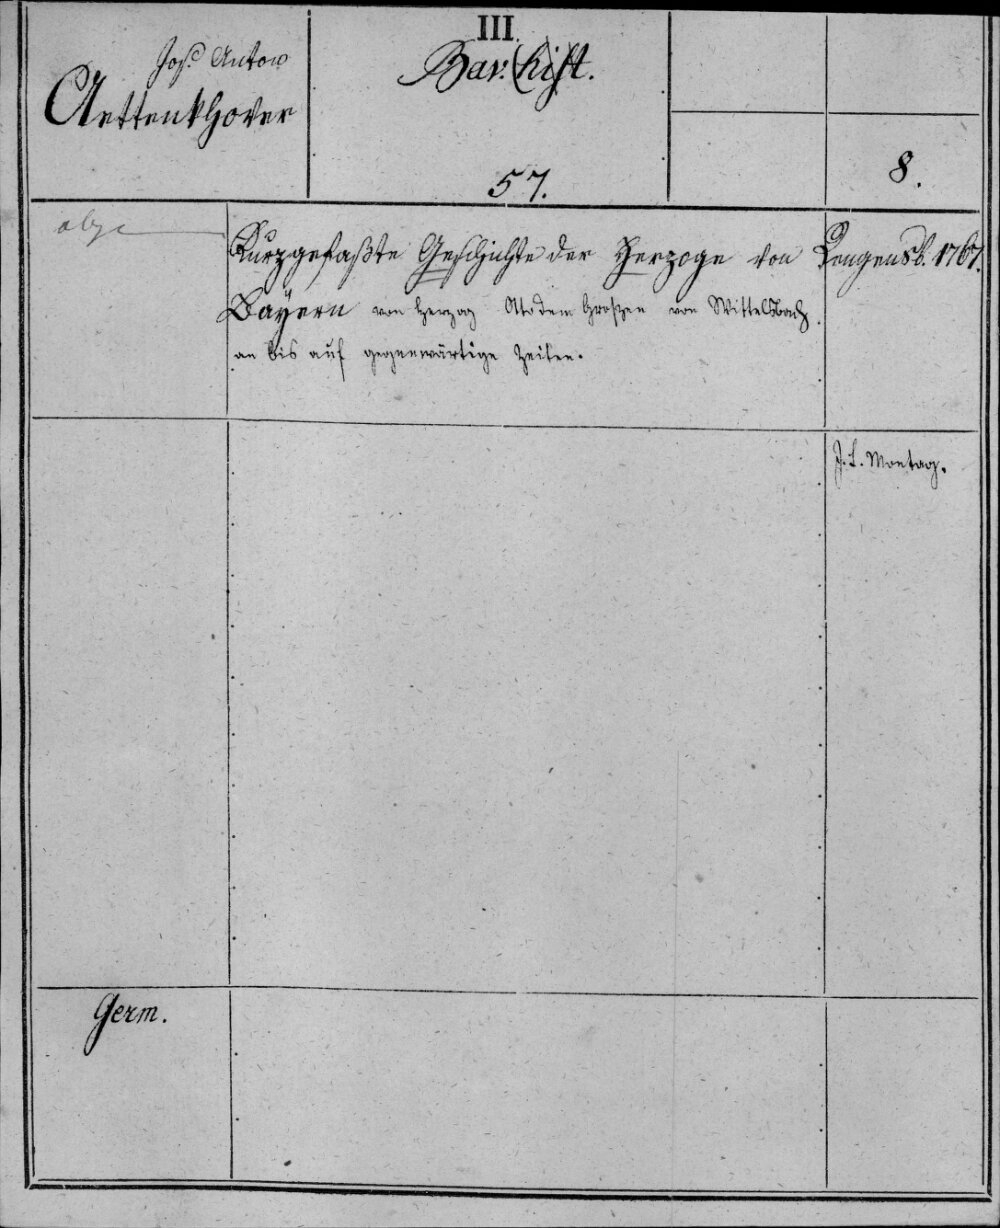 Jos. Anton
Aettenkhover
III.
Bav. hist.
57.
8.
Kurzgefaßte Geschichte der Herzoge von
Bayern von Herzog Otto dem Großen von Wittelsbach
an bis auf gegenwärtige Zeiten.
Regensb. 1767.
J. L. Montag.
Germ.